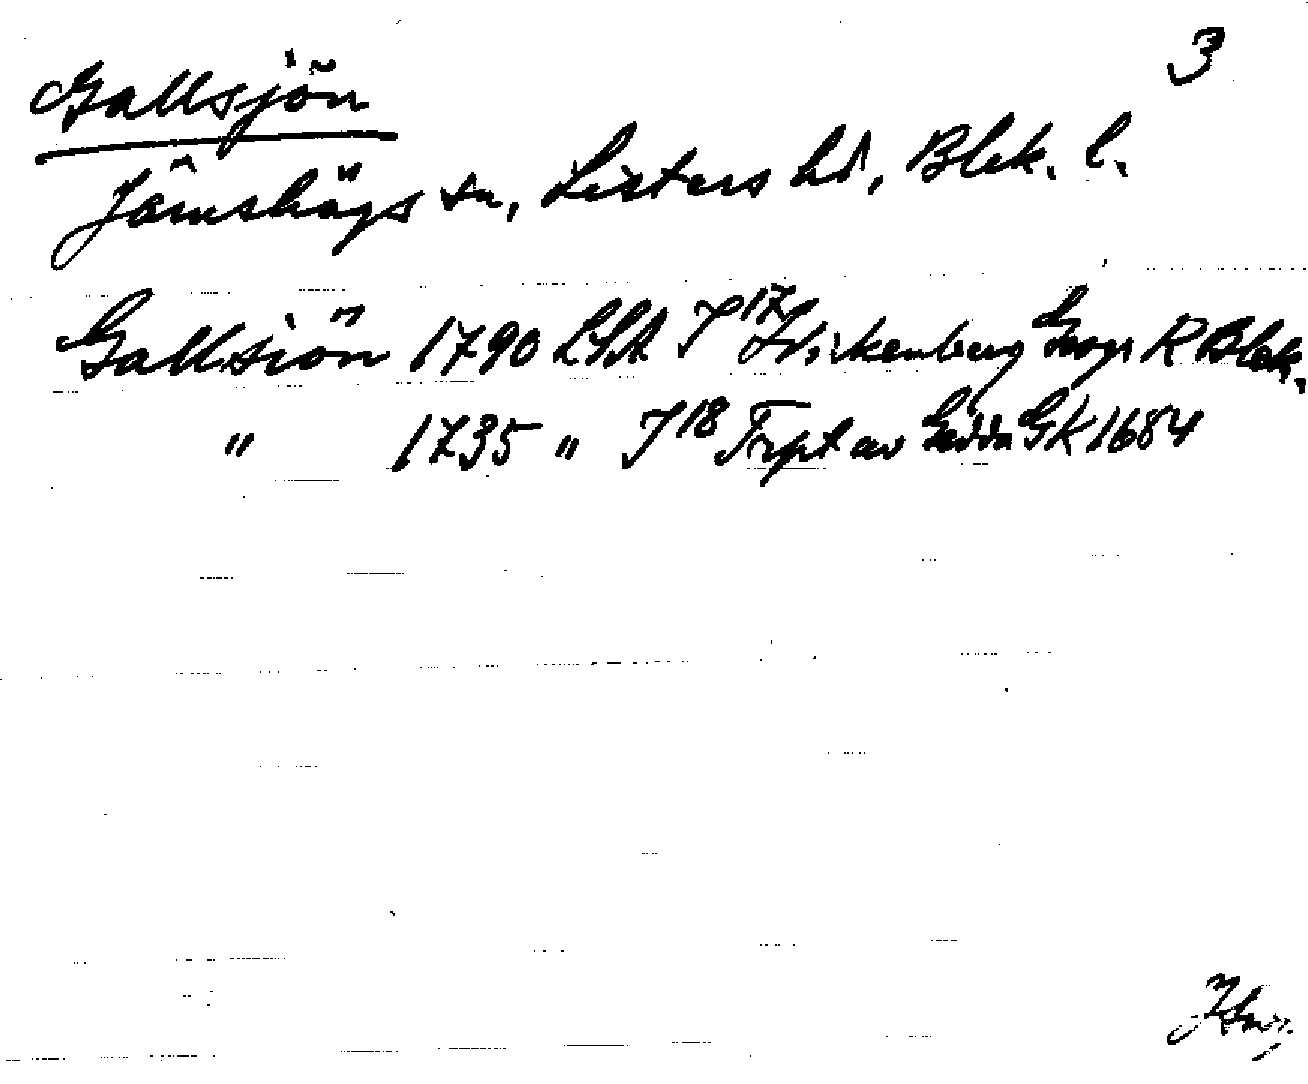 3
Gallsjön
Jämshögs sn, Listers hd, Blek. l.
Gallsiön 1790 LSA I 17 Wickenberg Geogr K Blek.
" 1735 " I 18 Trpt av Gedda GK 1684